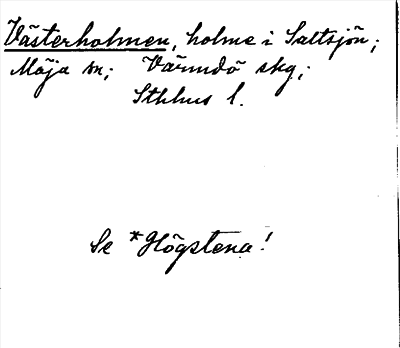 Västerholmen, holme i Saltsjön;
Möja sn; Värmdö skg;
Sthlms l.
Se *Högstena!